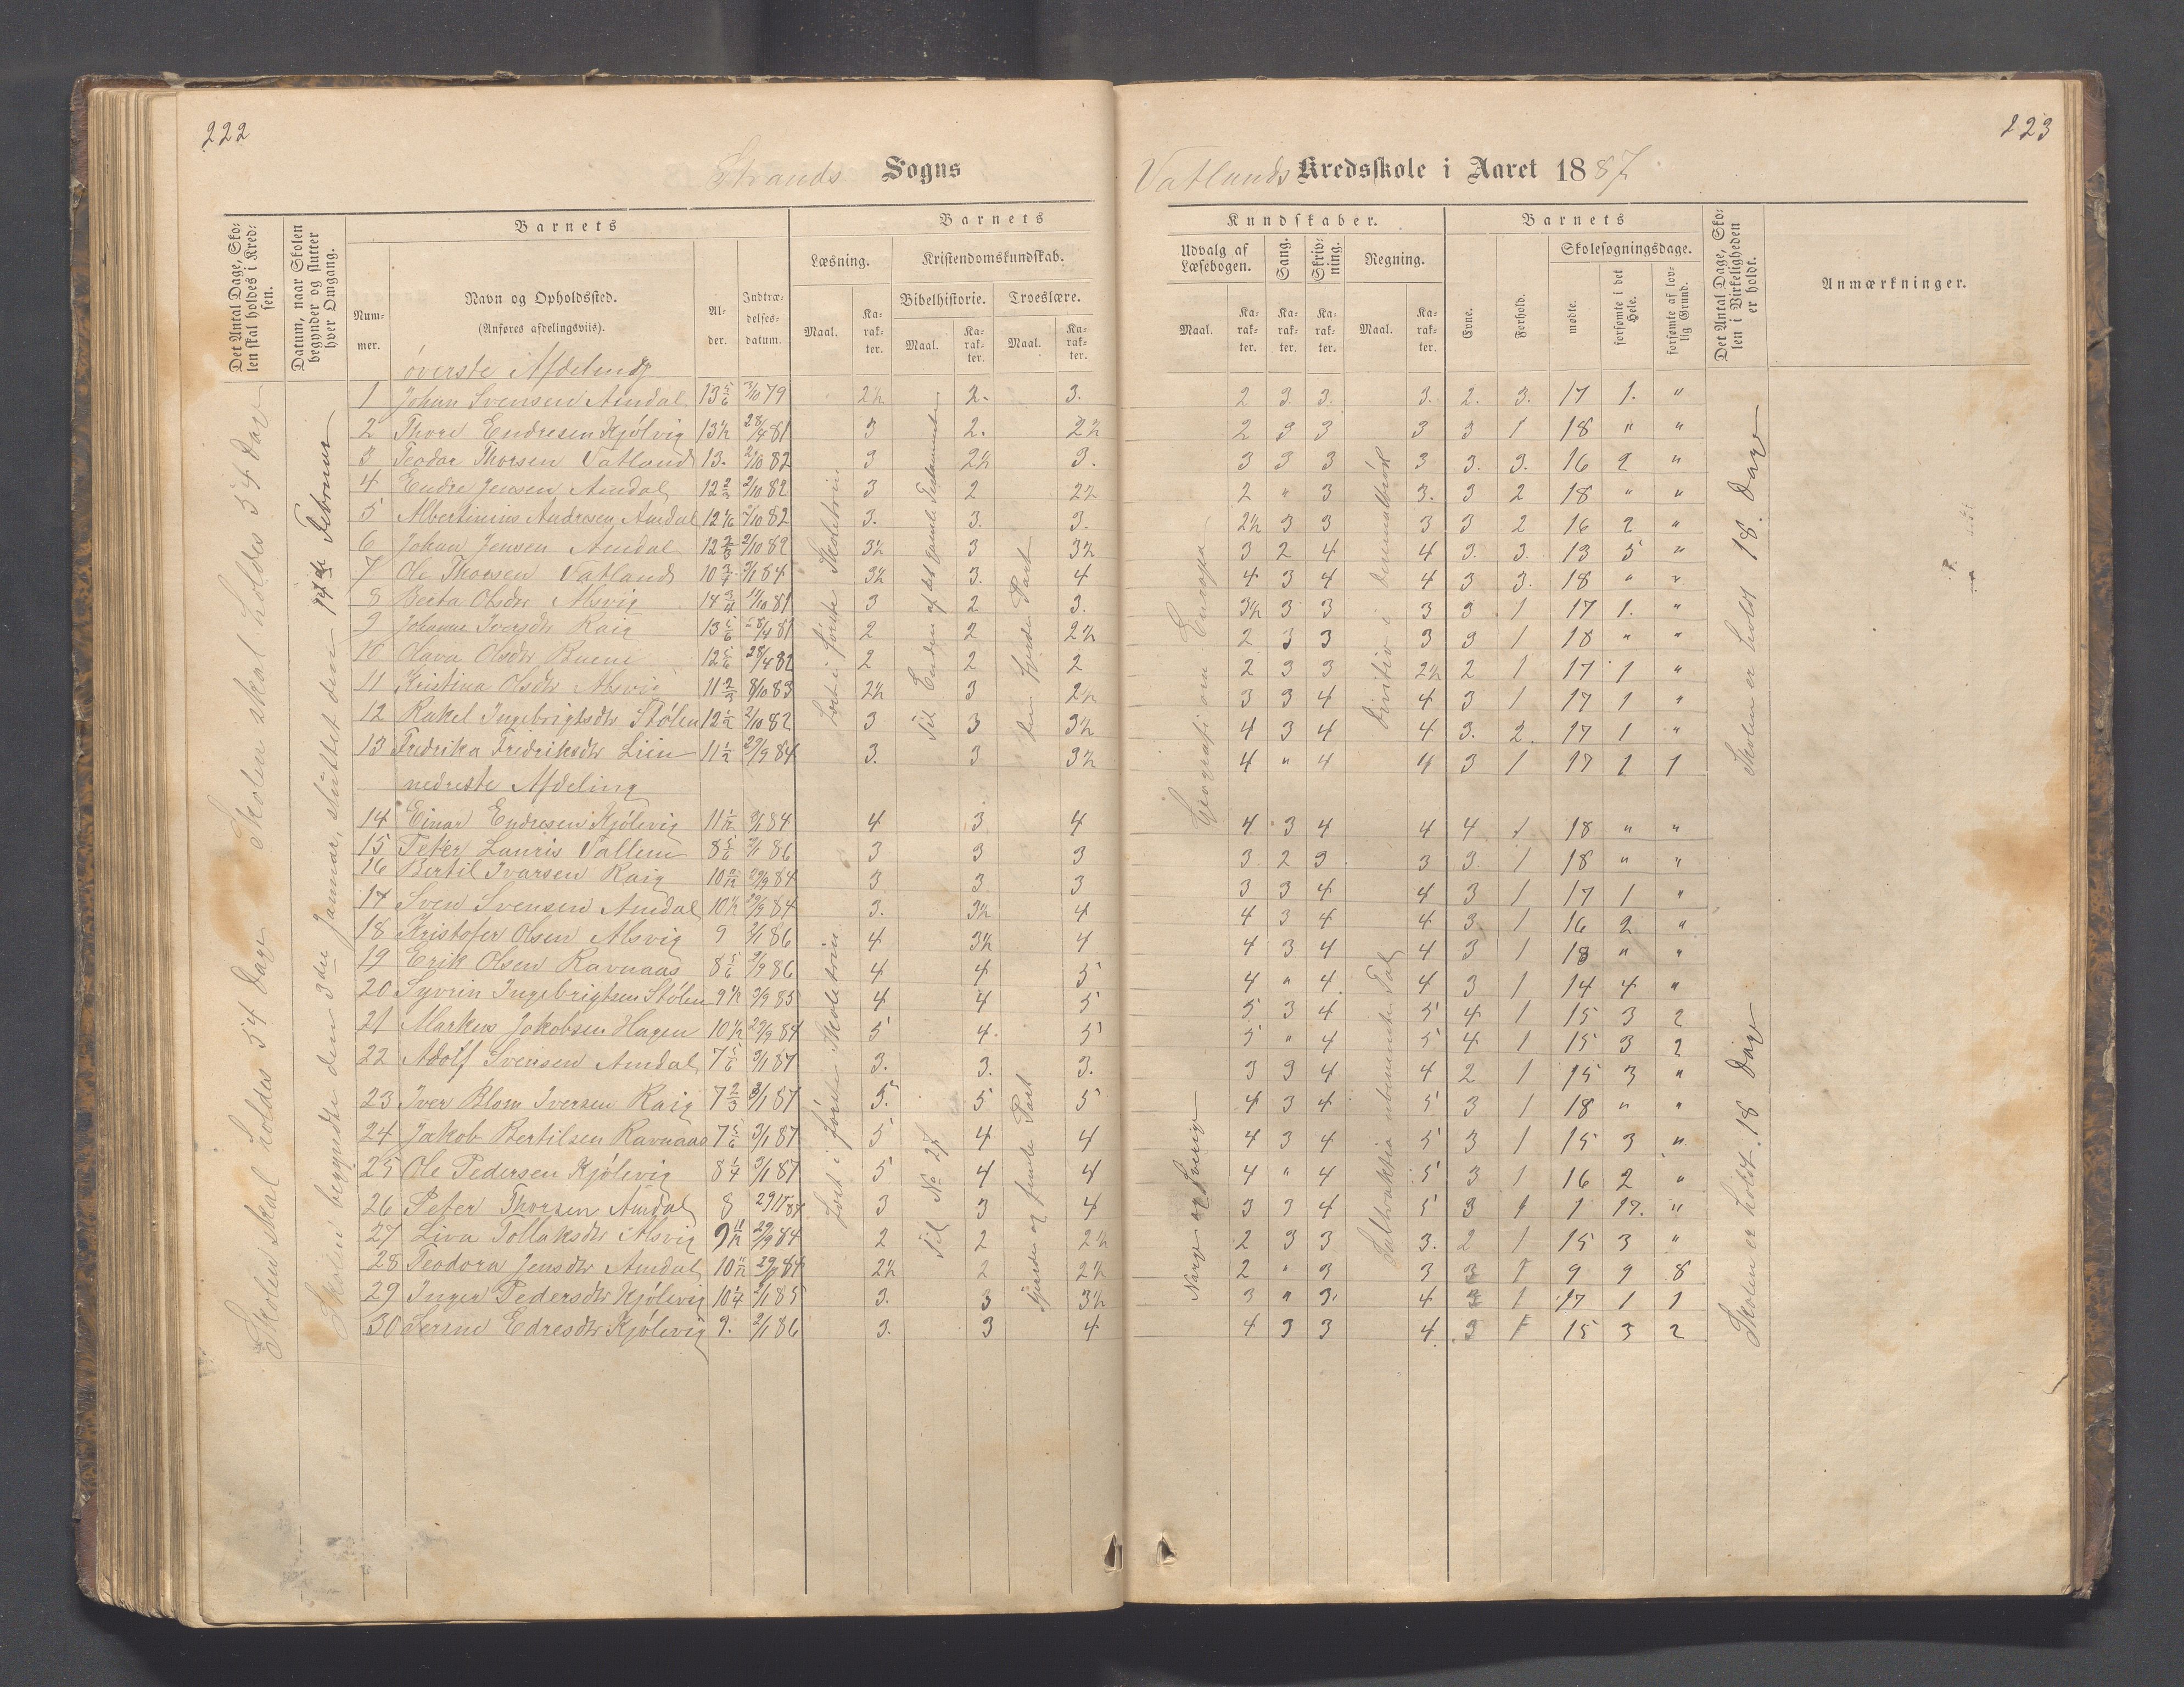 222
Strands Sogns
Det Antal Dage, Skolen skal holdes i Kredsen.
Datum, naar Skolen begynder og slutter hver Omgang.
Barnets
Nummer.
Navn og Opholdssted.
(Anføres afdelingsviis).
Alder.
Indtrædelsesdatum.
Barnets
Læsning.
Kristendomskundskab.
Bibelhistorie.
Troeslære.
Maal.
Karakter.
Maal.
Karakter.
Maal.
Karakter.
óverste Afdeling
1 Johan Svensen Amdal 13 5/6 3/10 79 2½ 2. 3.
2 Thore Endresen Kjólvig 13½ 28/4 81 3 2. 2½
3 Teodor Thorsen Vatland 13. 2/10 82 3 2½ 3.
4 Endre Jensen Amdal 12 2/3 2/10 82 3 2 2½
5 Albertinius Andresen Amdal 12 1/6 2/10 82 3. 3. 3.
6 Johan Jensen Amdal 12 2/3 2/10 82 3½ 3 3½
7 Ole Thorsen Vatland 10 3/4 3/1 84 3½ 3. 4
8 Berta Olsdtr Alsvig 14 3/4 81 3 2 3.
9 Johanne Iversdtr Raig 13 5/6 28/4 81 2 2 2½
10 Olava Olsdtr 12 5/6 28/4 82 2 2 2
11 Kristina Olsdtr Alsvig 11 2/3 8/10 83 2½ 3 2½
12 Rakel Ingebrigtsdtr Stólen 12½ 2/10 82 3 3 3½
13 Fredrika Fredriksdtr Liin 11½ 29/9 84 3. 3 3½
nedreste Afdeling
14 Einar Endresen Kjólevig 84 4 3 4
15 Peter Lauris 8 5/6 2/1 86 3 3 3
16 Bertil Ivarsen Raig 29/9 84 3 3 3
17 Sven Svensen Amdal 10½ 29/9 84 3. 3½ 4
18 Kristofer Olsen Alsvig 9 2/1 86 4 3½ 4
19 Erik Olsen Ravnaas 8 5/6 86 4 4 5
20 Syvrin Ingebrigtsen Stólen 9½ 85 4 4 5
21 Markus Jakobsen Hagen 10½ 29/9 84 5 4. 5
22 Adolf Svensen Amdal 7 5/6 3/1 87 3. 3. 3.
23 Iver Blom Iversen Raig 7 2/3 3/1 87 5. 5 5
24 Jakob Bertilsen Ravnaas 7 5/6 3/1 87 5 4 4
25 Ole Pedersen Kjólevig 8 1/4 3/1 87 5 4 4
26 Peter Thorsen Amdal 8 3 3 4
27 Liva Tollaksdtr Alsvig 29/9 84 2 2 2½
28 Teodora Jensdtr Amdal 84 2½ 2 2½
29 Inger Pedersdtr Kjólevig 10 1/4 2/1 85 3. 3 3½
30 Serine Edresdtr Kjólevig 9. 2/1 86 3. 3 4
Skolen skal holdes 54 Dage
Skolen skal holdes 54 Dage
Skolen begyndte den 3die Januar, sluttet den 14de Februar
Læst i første Skoletrin
Læst i første Skoletrin
Til Enden af det gamle Testamente
Til No 27
den fjerde Part
fjerde og femte Part
223
Vatlands Kredsskole i Aaret 1887
Kundskaber.
Udvalg af Læsebogen.
Sang.
Skrivning.
Regning.
Maal.
Karakter.
Karakter.
Karakter.
Maal.
Karakter.
Barnets
Evne.
Forhold.
Skolesøgningsdage.
mødte.
forsømte i det Hele.
forsømte af lovlig Grund.
Det Antal Dage, Skolen i Virkeligheden er holdt.
Anmærkninger.
2 3 3. 3. 2. 3. 17 1. "
2 3 3 3 3 1 18 " "
3 3 3 3 3. 3. 16 2 "
2 " 3 3. 3 2 18 " "
2½ 3 3 3 3 2 16 2 "
3 2 4 4 3. 3. 13 5 "
4 3 4 4 3 3. 18 " "
3½ 3 3 3 3 1 17 1. "
2 3 3 3 3 1 18 " "
2 3 3 2½ 2 1 17 1 "
3 3 4 4 3 1 17 1 "
4 3 4 4 3. 2. 17 1 "
4 " 4 4 3 1 17 1 1
4 3 4 4 4 1 18 " "
3 2 3. 3 3 1 18 " "
3 3 4 4 3 1 17 1 "
4 3 4 4 3. 1 16 2 "
4 3 4 4 3 1 18 " "
4 " 4 4 3 1 14 4 "
5 3 4 5 4 1 15 3 2
5 " 4 5 4 1 15 3 2
3 3 4 4 2 1 15 3 "
4 3 4 5 3 1 18 " "
4 3 4 5 3 1 15 3 "
4 " 4 5 3 1 16 2 "
3 3 4 5 3 1 1 17. "
2 3 3 3. 2 1 15 3 "
2 " 3 3 3 1 9 9 8
3 " 3. 4 3 1 17 1 1
4 3 3 4. 3 1 15 3 2
Geografi om Europa
Norge og Sverige
Division i
Subtraktion ubenævnte Tal
Skolen er holdt 18. Dage
Skolen er holdt. 18 Dage